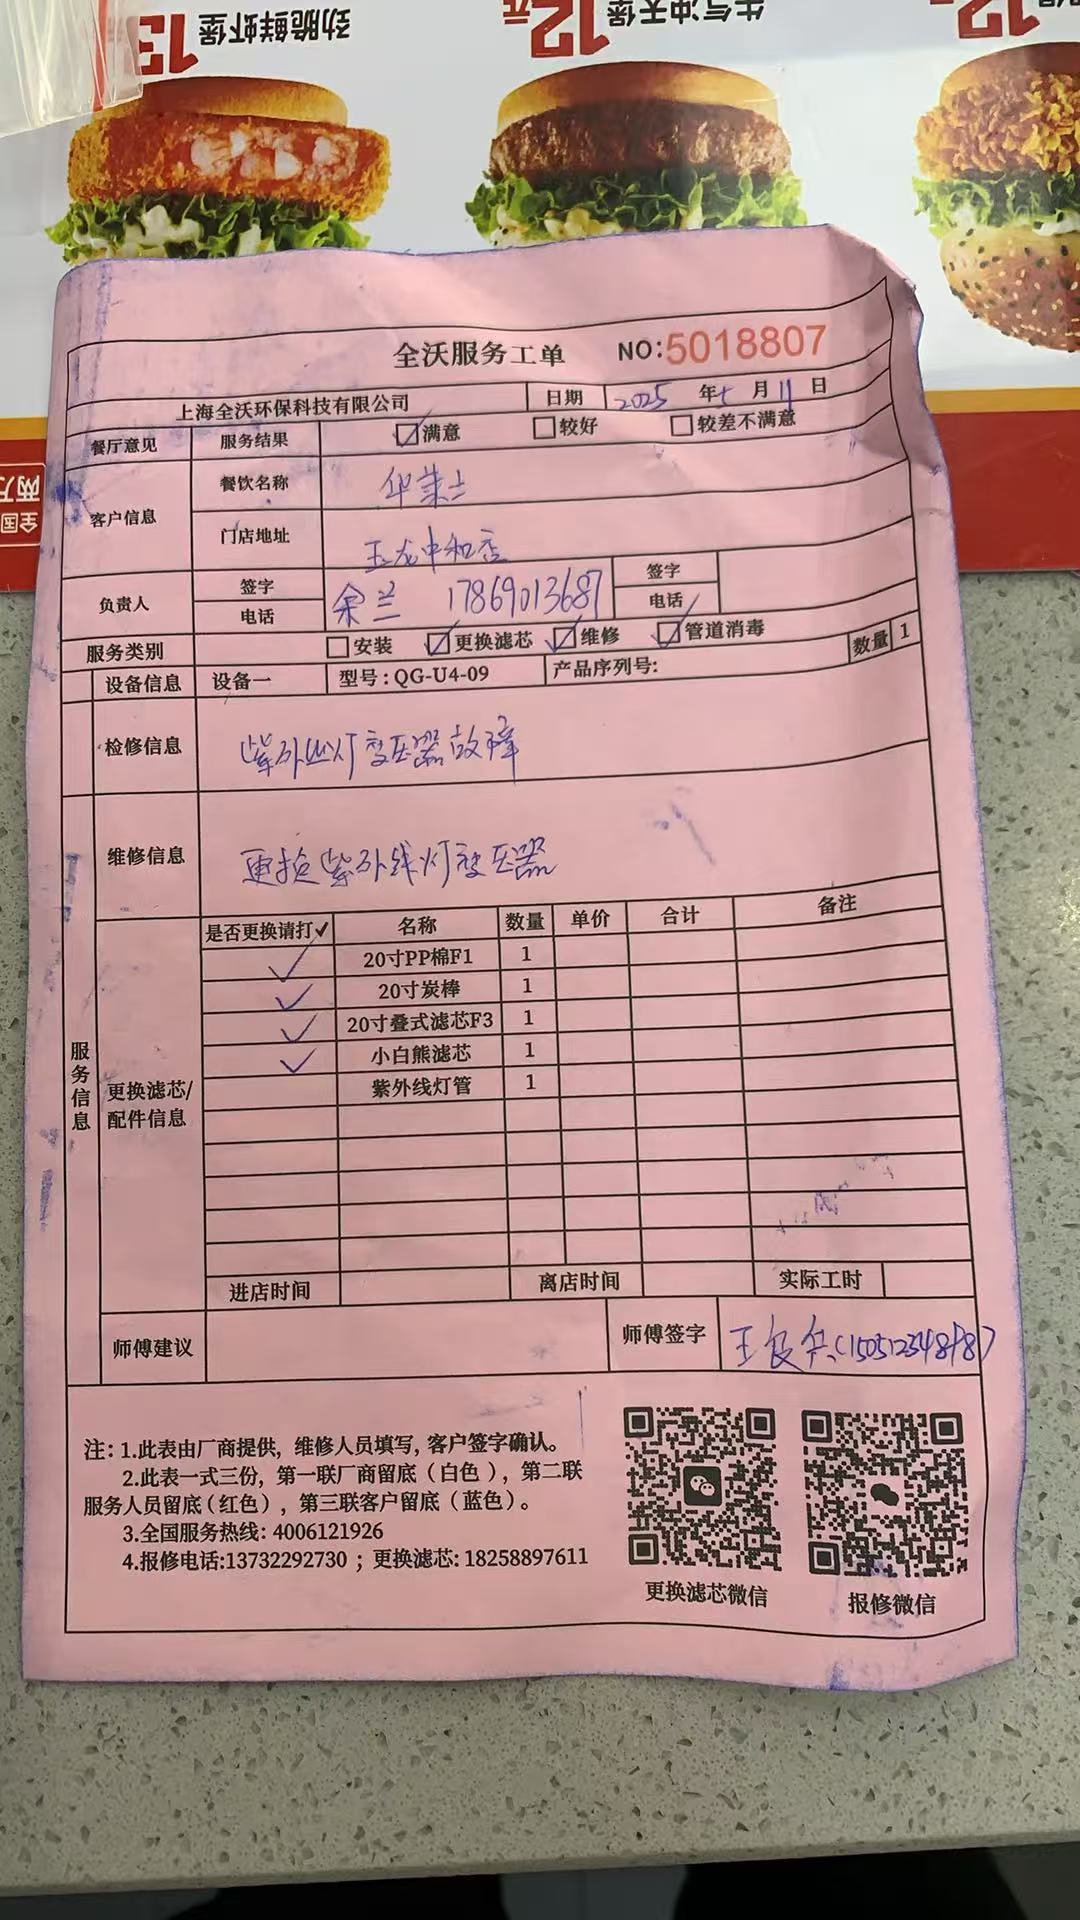 劲脆鲜虾堡
13
牛气冲天堡
12元
12
全国
两万
全沃服务工单 NO:5018807
上海全沃环保科技有限公司 日期 2025 年 七 月 11 日
餐厅意见 服务结果 ☑满意 □较好 □较差不满意
客户信息 餐饮名称 华莱士
门店地址 玉龙中和店
负责人 签字 余兰 17869013687 签字
电话 电话
服务类别 □安装 ☑更换滤芯 ☑维修 ☑管道消毒 数量 1
设备信息 设备一 型号:QG-U4-09 产品序列号:
检修信息 紫外线灯变压器故障
维修信息 更换紫外线灯变压器
服务信息
更换滤芯/配件信息
是否更换请打✓ 名称 数量 单价 合计 备注
✓ 20寸PP棉F1 1
✓ 20寸炭棒 1
✓ 20寸叠式滤芯F3 1
✓ 小白熊滤芯 1
紫外线灯管 1
进店时间 离店时间 实际工时
师傅建议 师傅签字 王
注: 1.此表由厂商提供, 维修人员填写, 客户签字确认。
2.此表一式三份, 第一联厂商留底(白色), 第二联
服务人员留底(红色), 第三联客户留底(蓝色)。
3.全国服务热线: 4006121926
4.报修电话:13732292730 ; 更换滤芯: 18258897611
更换滤芯微信 报修微信